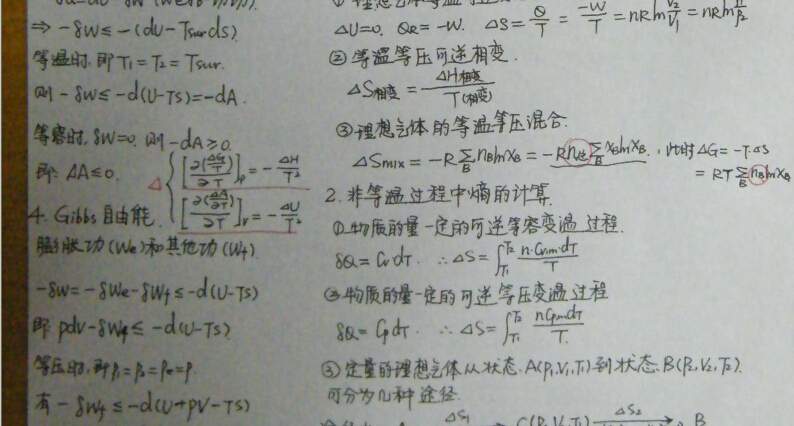 ⇒ -δW ≤ -(dU - Tsur ds)
等温时, 即 T₁ = T₂ = Tsur.
则 -δW ≤ -d(U-TS) = -dA.
等容时, δW=0, 则 -dA ≥ 0.
即 ΔA ≤ 0.
△ { [∂(ΔG/T)/∂T]p = -ΔH/T²
[∂(ΔA/T)/∂T]v = -ΔU/T²
4. Gibbs 自由能.
膨胀功(We)和其他功(Wf)
-δW = -δWe - δWf ≤ -d(U-TS)
即 pdV - δWf ≤ -d(U-TS)
等压时, 即 p₁ = p₂ = pe = p.
有 -δWf ≤ -d(U+pV-TS)
ΔU=0. QR = -W. ΔS = Q/T = -W/T = nR ln V₂/V₁ = nR ln p₁/p₂
② 等温等压可逆相变.
ΔS相变 = ΔH相变/T(相变)
③ 理想气体的等温等压混合.
ΔSmix = -R ∑B nB ln xB = -R n总 ∑B xB ln xB. 此时 ΔG = -T·ΔS
= RT ∑B nB ln xB
2. 非等温过程中熵的计算.
① 物质的量一定的可逆等容变温过程.
δQ = Cv dT. ∴ ΔS = ∫T₁T₂ n·Cv,m·dT/T
② 物质的量一定的可逆等压变温过程
δQ = Cp dT. ∴ ΔS = ∫T₁T₂ nCp,m dT/T
③ 定量的理想气体从状态 A(p₁,V₁,T₁) 到状态 B(p₂,V₂,T₂).
可分为几种途径.
ΔS₁ ΔS₂ B